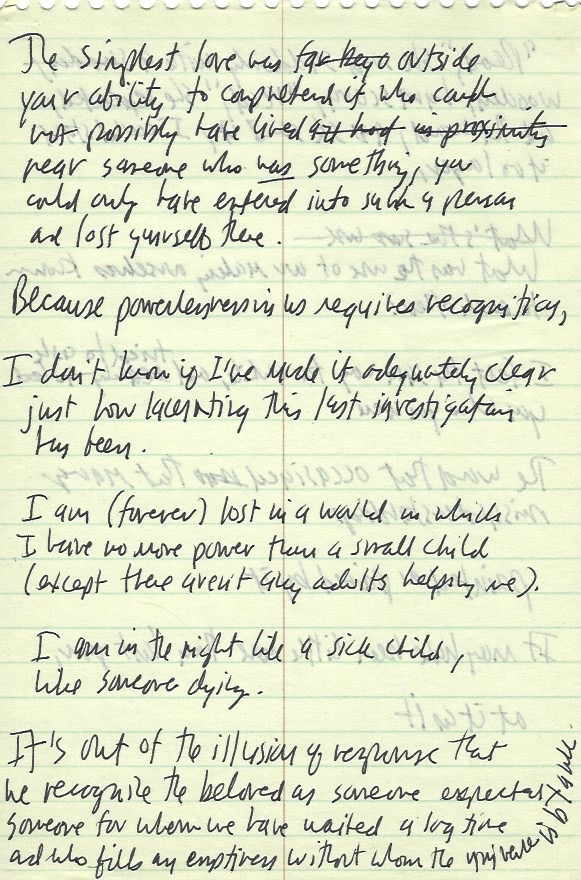 The simplest love was far beyo outside
your ability to comprehend it who could
not possibly have lived in proximity
near someone who was something, you
could only have entered into such a person
and lost yourself there.
Because powerlessness in us requires recognition,
I don't know if I've made it adequately clear
just how lacerating this last investigation
has been.
I am (forever) lost in a world in which
I have no more power than a small child
(except there aren't any adults helping me).
I am in the night like a sick child,
like someone dying.
It's out of the illusion of response that
we recognize the beloved as someone expected
someone for whom we have waited a long time
and who fills an emptiness without whom the universe is blank.